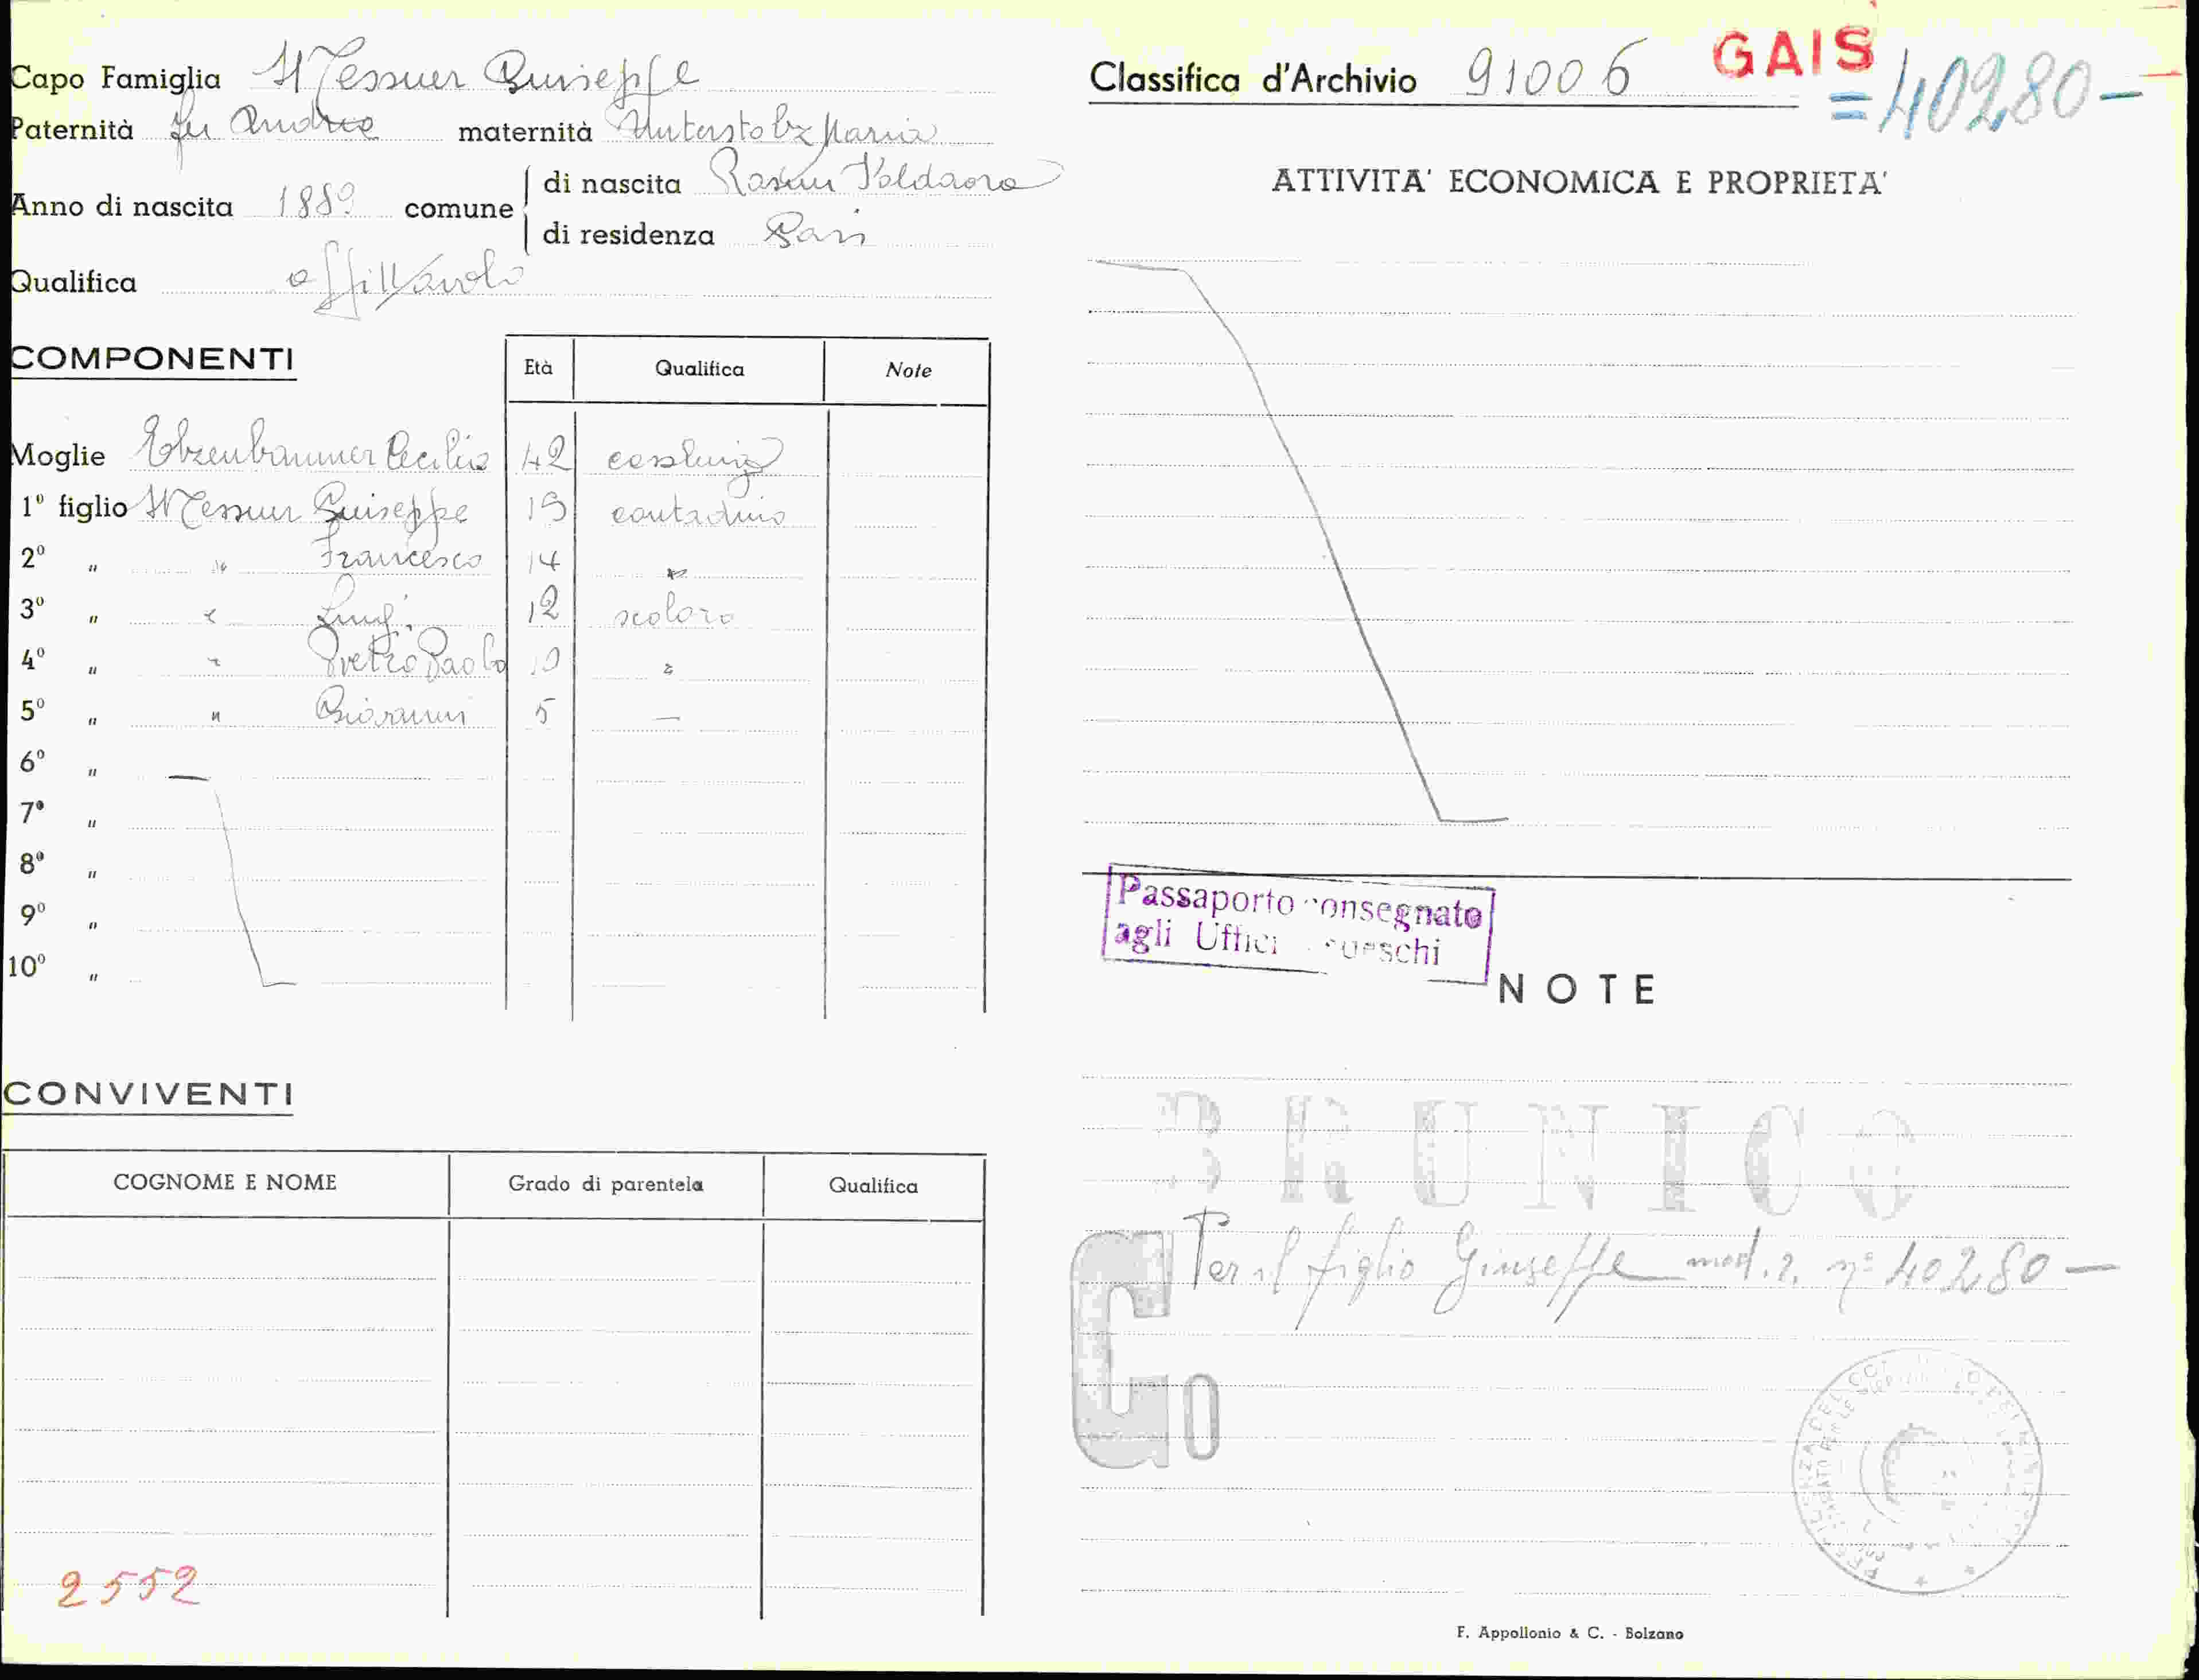 Capo Famiglia Messner Giuseppe
Paternità fu Andrea maternità Unterstolz Maria
Anno di nascita 1889 comune
di nascita Rasun Valdaora
di residenza Gais
Qualifica affittavolo
COMPONENTI
Età Qualifica Note
Moglie Cecilia 42 casalinga
1º figlio Messner Giuseppe 19 contadino
2º " " Francesco 14 "
3º " " Luigi 12 scolaro
4º " " Pietro Paolo 10 "
5º " " Giovanni 5 —
6º "
7º "
8º "
9º "
10º "
CONVIVENTI
COGNOME E NOME Grado di parentela Qualifica
2552
Classifica d'Archivio 91006 GAIS
=40280—
ATTIVITA' ECONOMICA E PROPRIETA'
Passaporto consegnato
agli Uffici Tedeschi
NOTE
BRUNICO
Per il figlio Giuseppe mod. 2. nº 40280—
G
0
F. Appollonio & C. - Bolzano